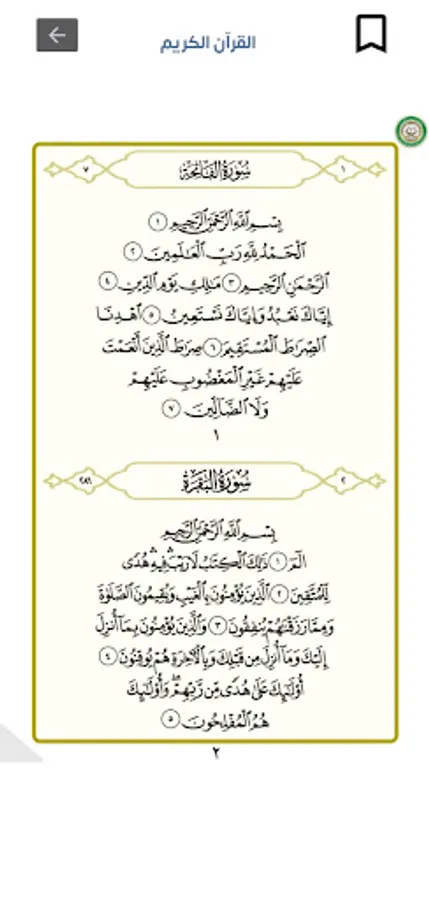 القرآن الكريم
١ سُورَةُ الفَاتِحَةِ ٧
بِسْمِ اللَّهِ الرَّحْمَٰنِ الرَّحِيمِ ١
الْحَمْدُ لِلَّهِ رَبِّ الْعَالَمِينَ ٢
الرَّحْمَٰنِ الرَّحِيمِ ٣ مَالِكِ يَوْمِ الدِّينِ ٤
إِيَّاكَ نَعْبُدُ وَإِيَّاكَ نَسْتَعِينُ ٥ اهْدِنَا
الصِّرَاطَ الْمُسْتَقِيمَ ٦ صِرَاطَ الَّذِينَ أَنْعَمْتَ
عَلَيْهِمْ غَيْرِ الْمَغْضُوبِ عَلَيْهِمْ
وَلَا الضَّالِّينَ ٧
١
٢ سُورَةُ البَقَرَةِ ٢٨٦
بِسْمِ اللَّهِ الرَّحْمَٰنِ الرَّحِيمِ
الم ١ ذَٰلِكَ الْكِتَٰبُ لَا رَيْبَ ۛ فِيهِ ۛ هُدًى
لِلْمُتَّقِينَ ٢ الَّذِينَ يُؤْمِنُونَ بِالْغَيْبِ وَيُقِيمُونَ الصَّلَوٰةَ
وَمِمَّا رَزَقْنَٰهُمْ يُنْفِقُونَ ٣ وَالَّذِينَ يُؤْمِنُونَ بِمَا أُنْزِلَ
إِلَيْكَ وَمَا أُنْزِلَ مِنْ قَبْلِكَ وَبِالْآخِرَةِ هُمْ يُوقِنُونَ ٤
أُولَٰئِكَ عَلَىٰ هُدًى مِنْ رَبِّهِمْ ۖ وَأُولَٰئِكَ
هُمُ الْمُفْلِحُونَ ٥
٢